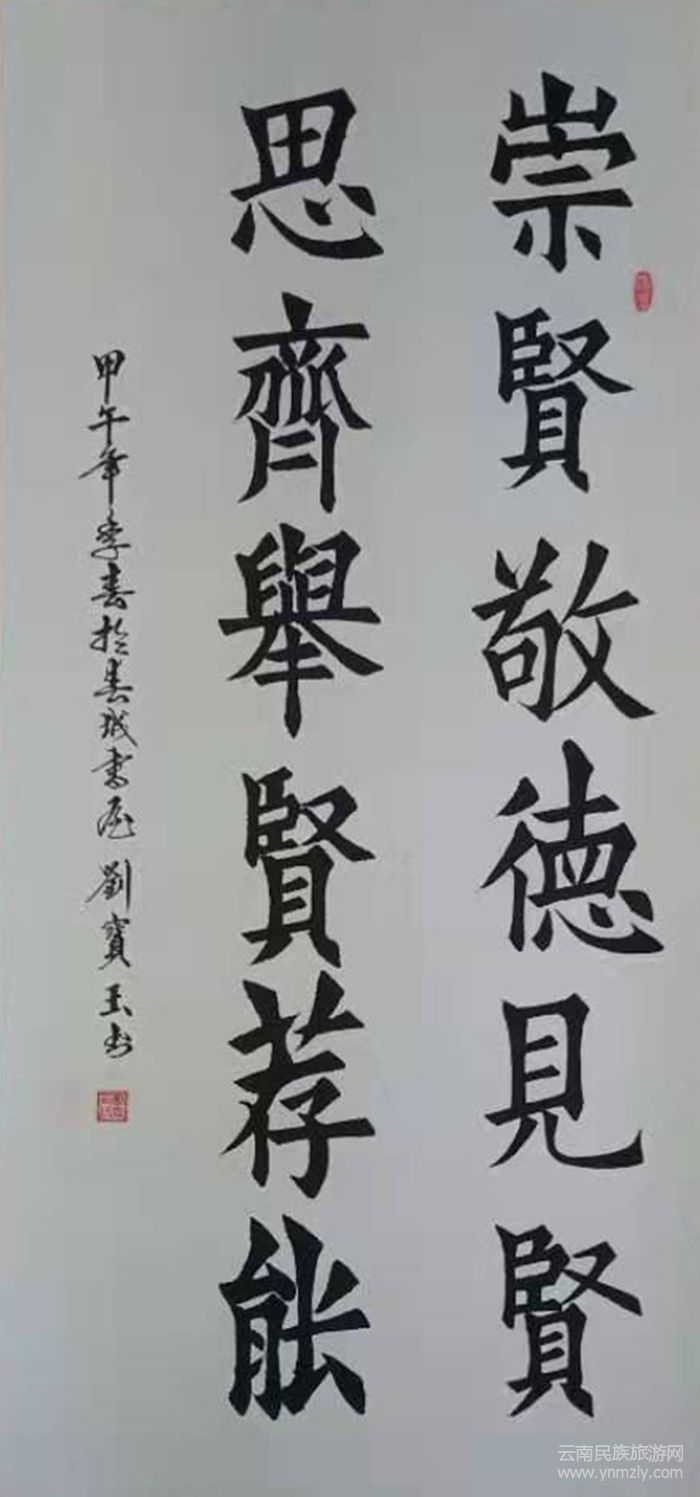 崇賢敬德見賢
思齊舉賢荐能
甲午年季春於春城書屋劉寶玉书
云南民族旅游网
www.ynmzly.com